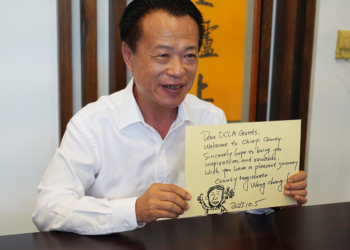 Dear DCLA Guests,
Welcome to Chiayi County.
Sincerely hope to bring you
inspiration and
Wish you have a pleasant journey
County Magistrate
Weng chang
2023.10.5